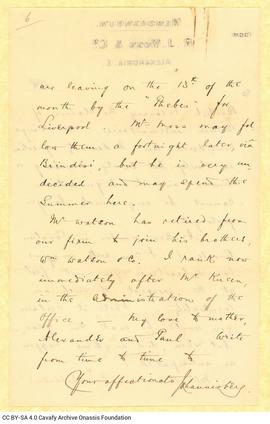 6
are leaving on the 13th of the
month by the "Thebes" for
Liverpool. Mr Moss may fol
low them a fortnight later, via
Brindisi, but he is very un
decided and may spend the
Summer here.
Mr Watson has retired from
our firm to join his brothers,
Wm Watson & Co. I rank now
immediately after Mr
in the administration of the
Office. — My love to mother,
Alexander and Paul. Write
from time to time to
Your affectionate
CC BY-SA 4.0 Cavafy Archive Onassis Foundation